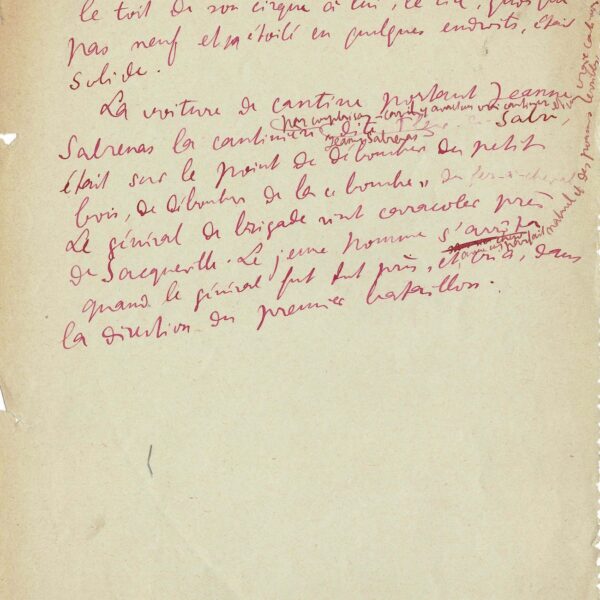 le toit de son cirque à lui, le ciel, quoique
pas neuf et étoilé en quelques endroits, était
solide.
La voiture de cantine portant Jeanne
Sabrenas la cantinière
Jeanne Sabrenas
était sur le point de déboucher du petit
bois, de déboucher de la « bombe »
Le général de brigade vint caracoler près
de Sacqueville. Le jeune homme s'arrêta
quand le général fut tout près, et cria, dans
la direction du premier bataillon.